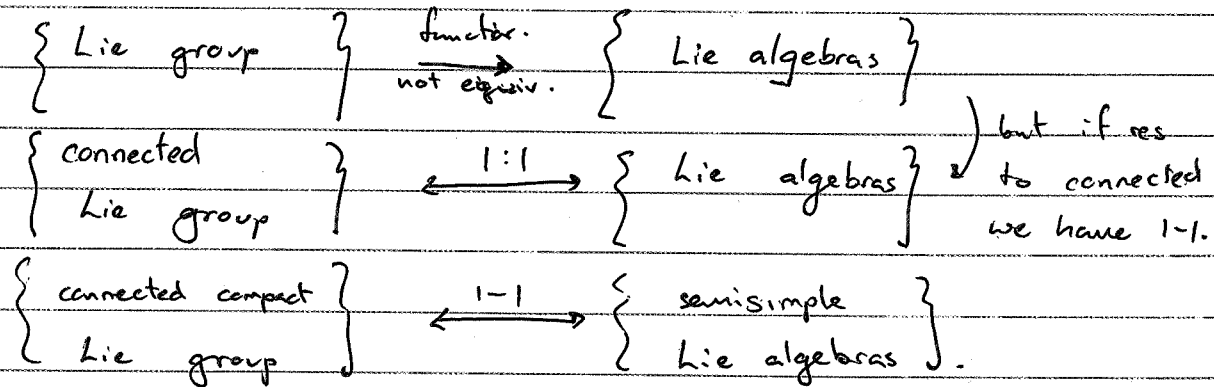 { Lie group } functor. → not equiv. { Lie algebras }
{ connected Lie group } 1:1 ↔ { Lie algebras } but if res to connected we have 1-1.
{ connected compact Lie group } 1-1 ↔ { semisimple Lie algebras }.